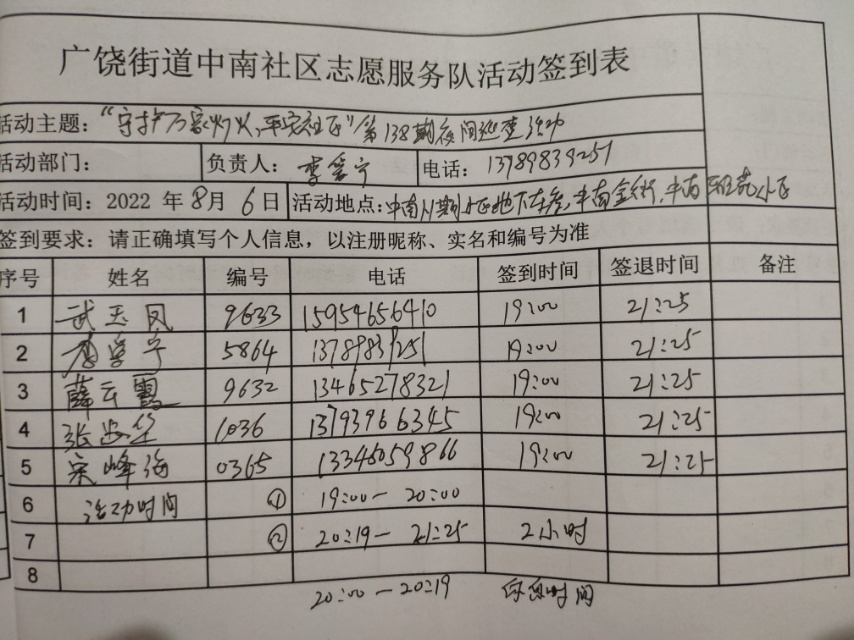 广饶街道中南社区志愿服务队活动签到表
活动主题：“守护万家灯火，平安社区”第138期夜间巡查活动
活动部门： 负责人： 李爱宁 电话：13789839251
活动时间：2022 年 8月 6 日 活动地点：中南八期小区地下车库，中南金街，中南 小区
签到要求：请正确填写个人信息，以注册昵称、实名和编号为准
序号 姓名 编号 电话 签到时间 签退时间 备注
1 武玉凤 9633 15954656410 19:00 21:25
2 宁 5864 13789839251 19:00 21:25
3 薛云霞 9632 13465278321 19:00 21:25
4 张 华 1036 13793966345 19:00 21:25
5 宋峰海 0365 13346059866 19:00 21:25
6 活动时间 ① 19:00－20:00
7 ② 20:19－21:25 2小时
8
20:00－20:19 休息时间